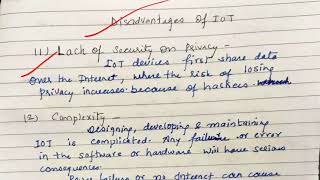 Disadvantages Of IOT
(1) Lack of Security on Privacy -
IOT devices first share data
over the Internet, where the risk of losing
privacy increases because of hackers
(2) Complexity -
Designing, developing & maintaining
IOT is complicated. Any failure or error
in the software or hardware will have serious
consequences.
Power failure or no Internet can cause